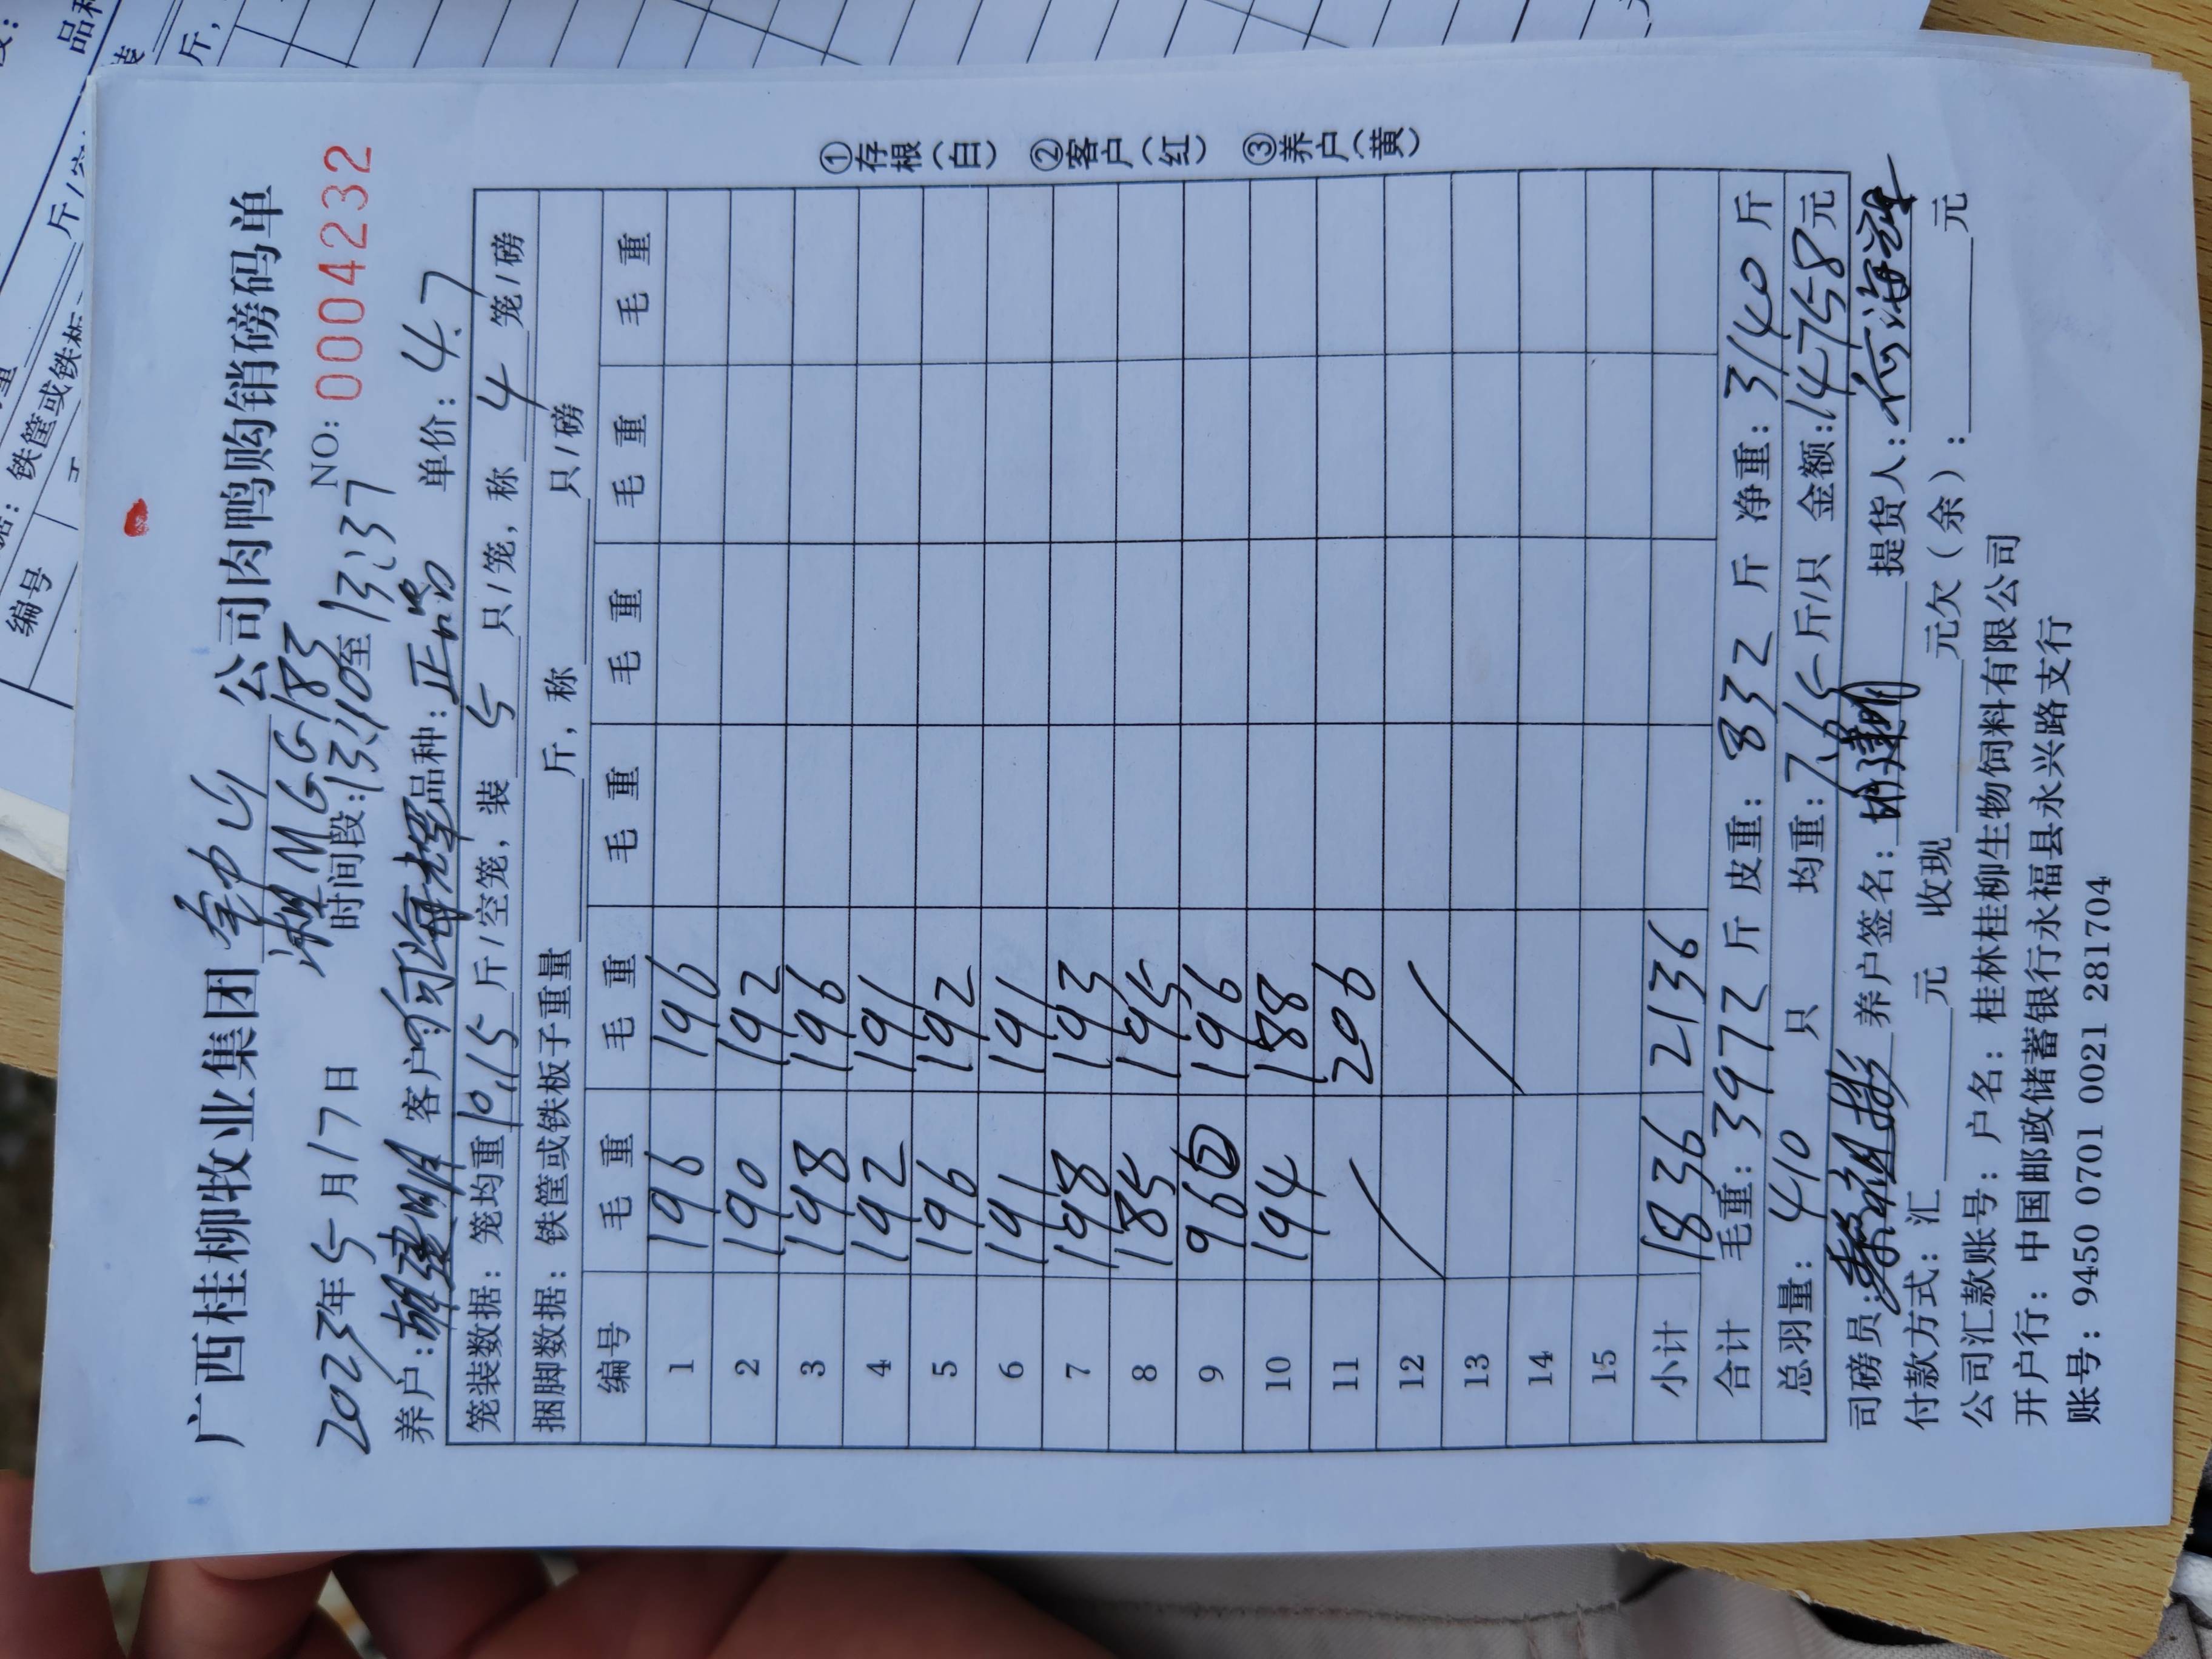 广西桂柳牧业集团 公司肉鸭购销磅码单
湘MGG183
2023年5月17日 时间段:13:10至13:37 NO: 0004232
养户:胡建明 客户:何海辉 品种:正品 单价:4.7
笼装数据: 笼均重10.15斤/空笼, 装 5 只/笼, 称 4 笼/磅
捆脚数据: 铁筐或铁板子重量 斤, 称 只/磅
编号 毛重 毛重 毛重 毛重 毛重 毛重
1 196 196
2 190 192
3 198 196
4 192 191
5 196 192
6 191 191
7 198 193
8 185 195
9 96② 196
10 194 188
11 206
12
13
14
15
小计 1836 2136
合计 毛重:3972斤 皮重:832斤 净重:3140斤
总羽量:410只 均重:7.65斤/只 金额:14758元
司磅员: 养户签名:胡建明 提货人:何海辉
付款方式:汇 元 收现 元欠(余): 元
公司汇款账号:户名:桂林桂柳生物饲料有限公司
开户行:中国邮政储蓄银行永福县永兴路支行
账号:9450 0701 0021 281704
①存根(白) ②客户(红) ③养户(黄)
品种
斤,
斤/空
铁筐或铁板
编号